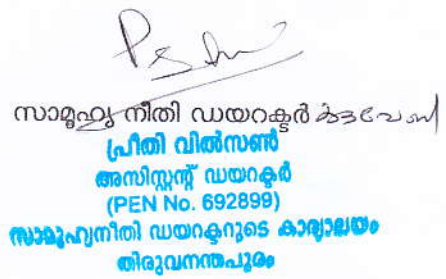 സാമൂഹ്യ നീതി ഡയറക്ടർക്കുവേണ്ടി
പ്രീതി വിൽസൺ
അസിസ്റ്റന്റ് ഡയറക്ടർ
(PEN No. 692899)
സാമൂഹ്യനീതി ഡയറക്ടറുടെ കാര്യാലയം
തിരുവനന്തപുരം